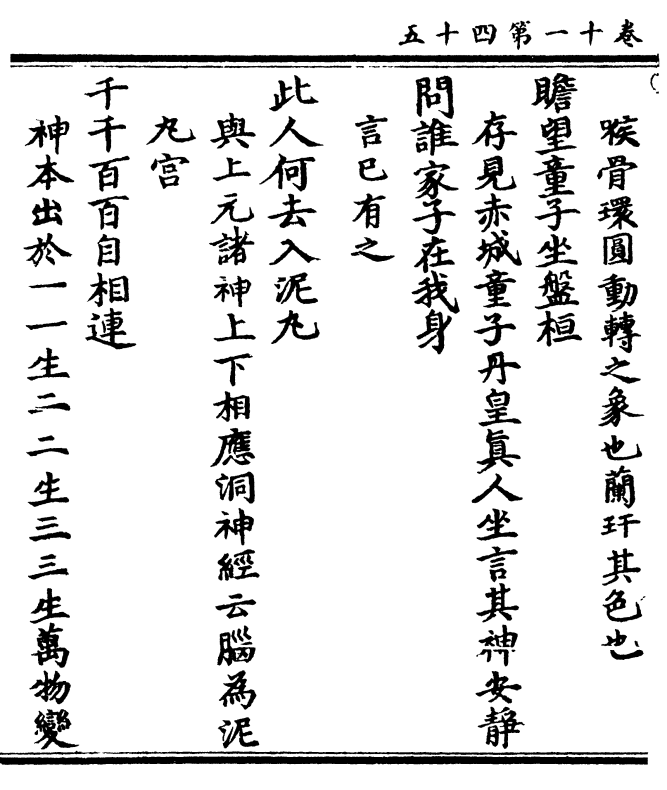 卷十一第四十五
喉骨環圓動轉之象也蘭玕其色也
瞻望童子坐盤桓
存見赤城童子丹皇真人坐言其神安靜
問誰家子在我身
言已有之
此人何去入泥丸
與上元諸神上下相應洞神經云腦為泥
丸宮
千千百百自相連
神本出於一一生二二生三三生萬物變